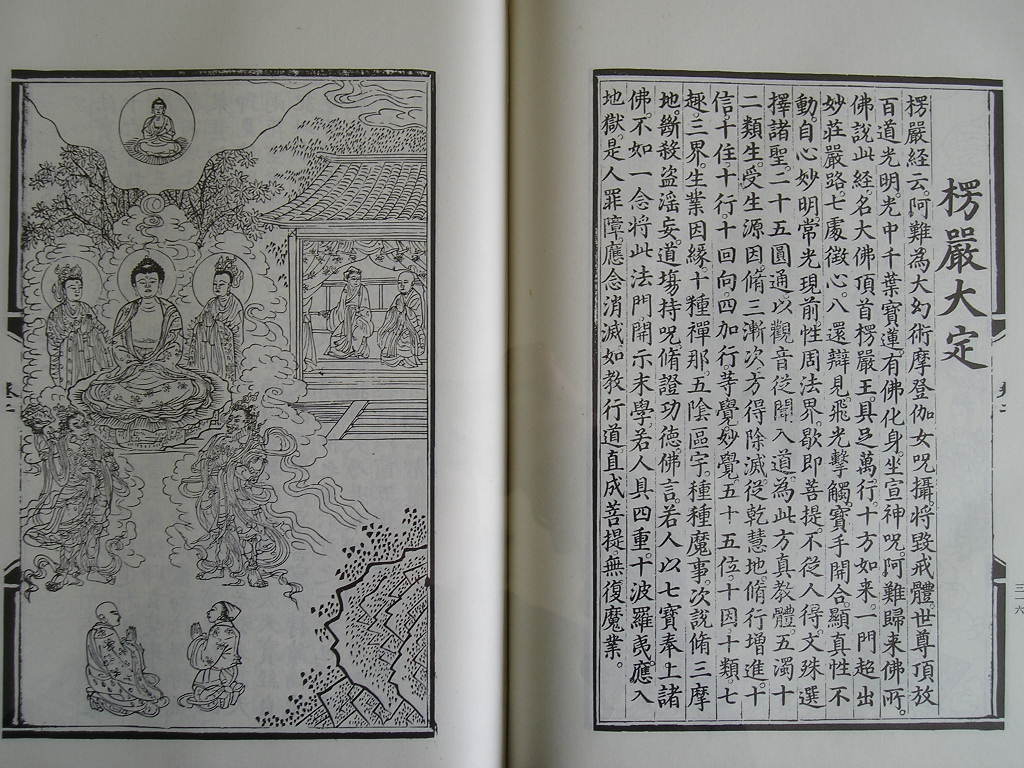 楞嚴大定
楞嚴經云。阿難為大幻術摩登伽女咒攝將毀戒體。世尊頂放
百道光明。光中千葉寶蓮。有佛化身。坐宣神咒。阿難歸來佛所。
佛說此經。名大佛頂首楞嚴王。具足萬行。十方如來。一門超出
妙莊嚴路。七處徵心。八還辯見。飛光擊觸。寶手開合。顯真性不
動。自心妙明。常光現前。性周法界。歇即菩提。不從人得。文殊選
擇諸聖。二十五圓通。以觀音從聞入道。為此方真教體。五濁十
二類生。受生源因。脩三漸次。方得除滅。從乾慧地。脩行增進。十
信。十住。十行。十回向。四加行。等覺妙覺。五十五位。十因十類。七
趣。三界。生業因緣。十種禪那。五陰區宇。種種魔事。次說脩三摩
地。斷殺盜婬妄。道場持咒。脩證功德。佛言。若人以七寶奉上諸
佛。不如一念將此法門。開示末學。若人具四重。十波羅夷。應入
地獄。是人罪障。應念消滅。如教行道。直成菩提。無復魔業。
卷二
三六